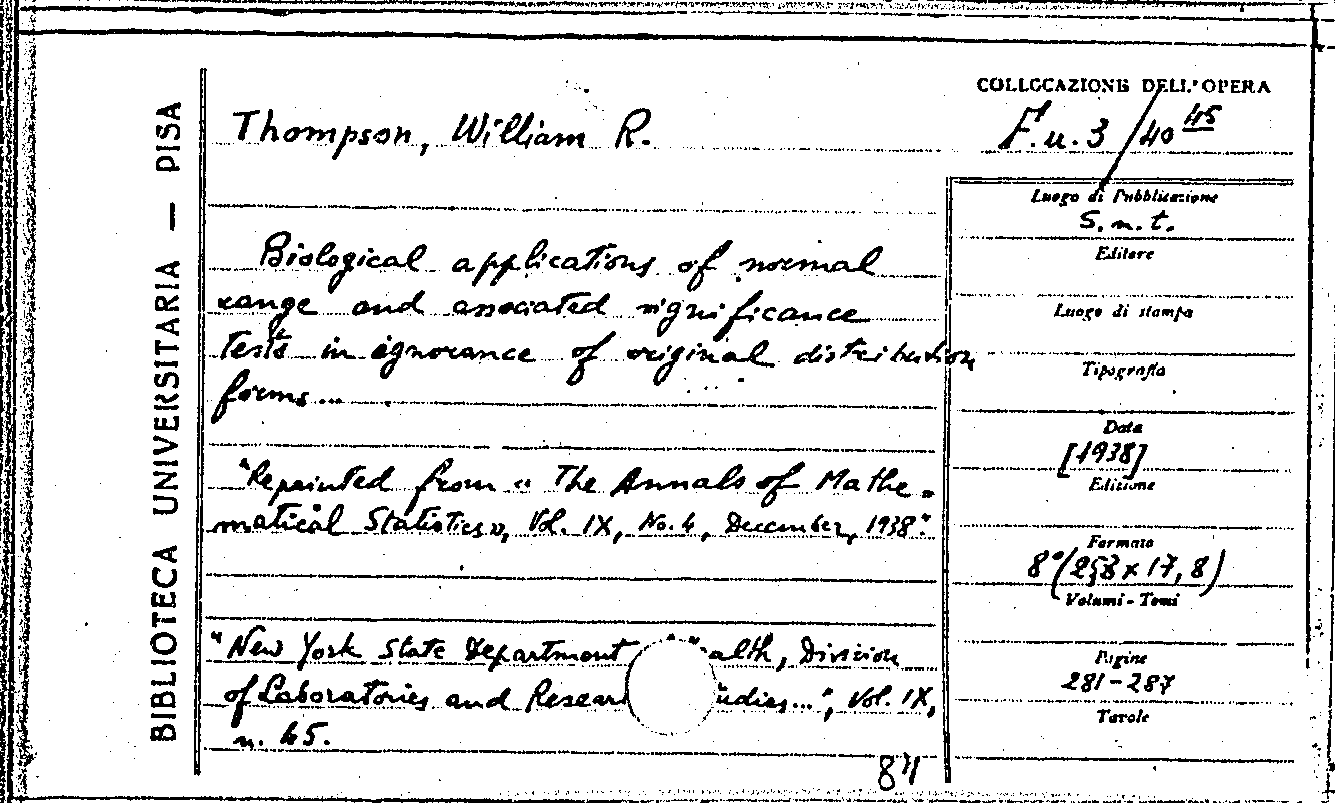 BIBLIOTECA UNIVERSITARIA — PISA
Thompson, William R.
Biological applications of normal
range and associated significance
tests in ignorance of original distribution
forms...
"Reprinted from « The Annals of Mathe=
matical Statistics», Vol. IX, No. 4, December, 1938".
"New York State Department alth, Division
of Laboratories and Resear udies...", Vol. IX,
n. 45.
84
COLLOCAZIONE DELL'OPERA
F.u. 3 / 40 45
Luogo di Pubblicazione
S.n.t.
Editore
Luogo di stampa
Tipografia
Data
[1938]
Edizione
Formato
8° (25,8 x 17,8)
Volumi - Tomi
Pagine
281-287
Tavole